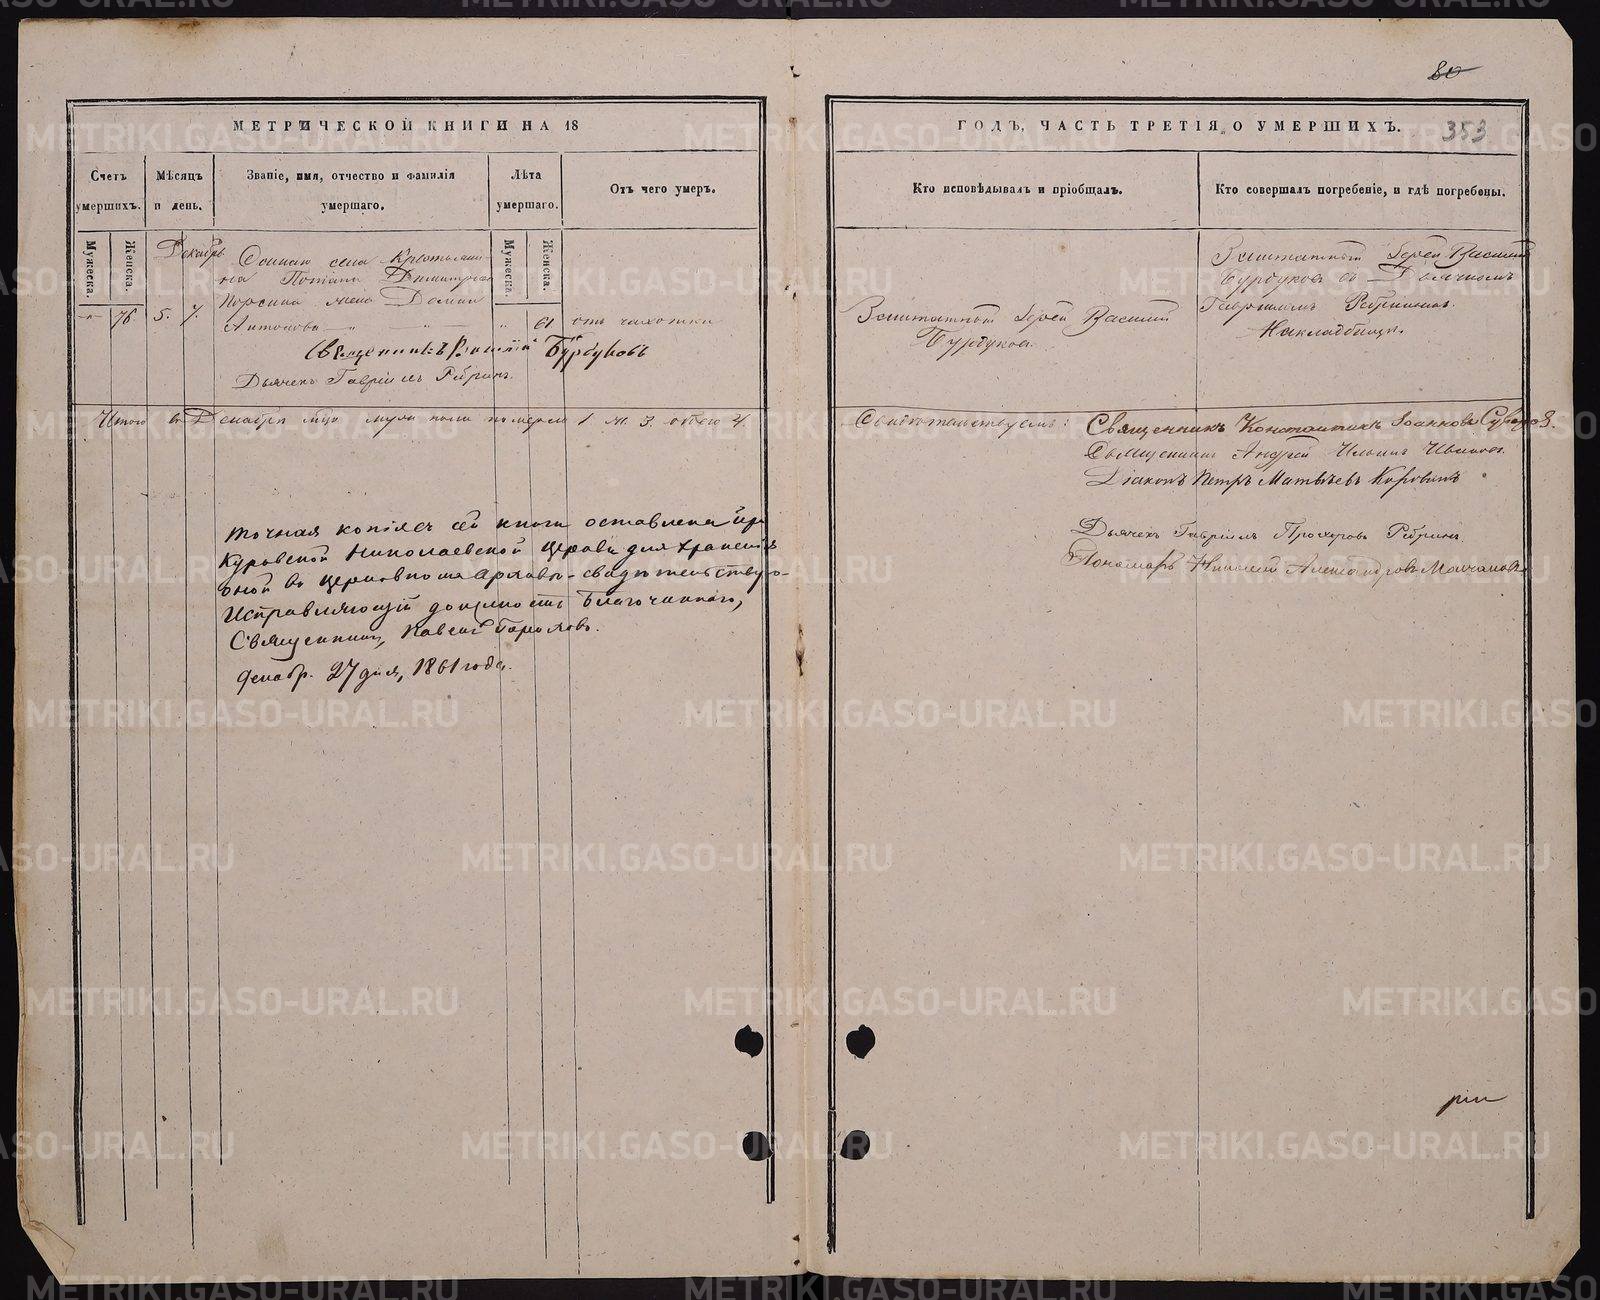 80
МЕТРИЧЕСКОЙ КНИГИ НА 18
ГОДЪ, ЧАСТЬ ТРЕТІЯ, О УМЕРШИХЪ.
353
Счетъ умершихъ.
Мѣсяцъ и день.
Званіе, имя, отчество и фамилія умершаго.
Лѣта умершаго.
Отъ чего умеръ.
Кто исповѣдывалъ и пріобщалъ.
Кто совершалъ погребеніе, и гдѣ погребены.
Мужеска.
Женска.
Мужеска.
Женска.
Декабрь
села Крестьяни-
на Димитріева
жена Домна
76. 5. 7.
Антонова 61 отъ чахотки
Священникъ Василій Бурдуковъ
Дьячекъ Гавріилъ Рѣбринъ.
Заштатный Іерей Василій
Бурдуковъ.
Заштатный Іерей Василій
Бурдуковъ съ Дьячкомъ
Гавріиломъ Рѣбринымъ.
На кладбищѣ.
Итого въ Декабрѣ м-цѣ муж. пола померло 1 ж. 3. обоего 4.
Свидѣтельствуемъ:
Священникъ Константинъ Іоанновъ
Священникъ Андрей Ильинъ
Діаконъ Петръ Матвѣевъ Коровинъ
Дьячекъ Гавріилъ Прохоровъ Рѣбринъ.
Пономарь Николай Александровъ Молчановъ
Точная копія съ сей книги оставлена при
Николаевской церкви для храненія
оной въ церковномъ Архивѣ - свидѣтельствую -
Исправляющій должность Благочиннаго,
Священникъ Павелъ
Декабр. 27 дня, 1861 года.
METRIKI.GASO-URAL.RU